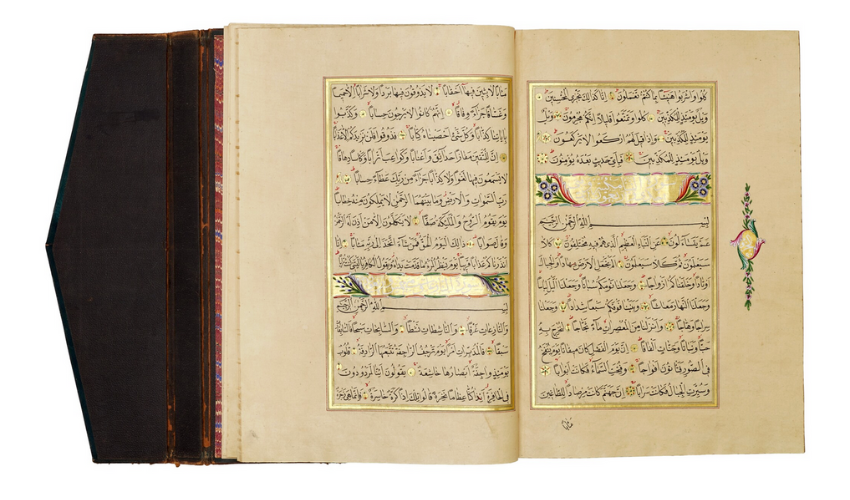 كلوا واشربوا هنيئا بما كنتم تعملون انا كذلك نجزي المحسنين
ويل يومئذ للمكذبين كلوا وتمتعوا قليلا انكم مجرمون ويل
يومئذ للمكذبين واذا قيل لهم اركعوا لا يركعون
ويل يومئذ للمكذبين فباي حديث بعده يؤمنون
بسم الله الرحمن الرحيم
عم يتساءلون عن النبإ العظيم الذي هم فيه مختلفون كلا
سيعلمون ثم كلا سيعلمون الم نجعل الارض مهادا والجبال
اوتادا وخلقناكم ازواجا وجعلنا نومكم سباتا وجعلنا الليل لباسا
وجعلنا النهار معاشا وبنينا فوقكم سبعا شدادا وجعلنا
سراجا وهاجا وانزلنا من المعصرات ماء ثجاجا لنخرج به
حبا ونباتا وجنات الفافا ان يوم الفصل كان ميقاتا يوم ينفخ
في الصور فتاتون افواجا وفتحت السماء فكانت ابوابا
وسيرت الجبال فكانت سرابا ان جهنم كانت مرصادا للطاغين
مابا
مابا لابثين فيها احقابا لا يذوقون فيها بردا ولا شرابا الا حميما
وغساقا جزاء وفاقا انهم كانوا لا يرجون حسابا وكذبوا
باياتنا كذابا وكل شيء احصيناه كتابا فذوقوا فلن نزيدكم الا عذابا
ان للمتقين مفازا حدائق واعنابا وكواعب اترابا وكاسا دهاقا
لا يسمعون فيها لغوا ولا كذابا جزاء من ربك عطاء حسابا
رب السموات والارض وما بينهما الرحمن لا يملكون منه خطابا
يوم يقوم الروح والملئكة صفا لا يتكلمون الا من اذن له الرحمن
وقال صوابا ذلك اليوم الحق فمن شاء اتخذ الى ربه مابا انا
انذرناكم عذابا قريبا يوم ينظر المرء ما قدمت يداه ويقول الكافر يا ليتني كنت ترابا
بسم الله الرحمن الرحيم
والنازعات غرقا والناشطات نشطا والسابحات سبحا فالسابقات
سبقا فالمدبرات امرا يوم ترجف الراجفة تتبعها الرادفة قلوب
يومئذ واجفة ابصارها خاشعة يقولون ائنا لمردودون
في الحافرة ائذا كنا عظاما نخرة قالوا تلك اذا كرة خاسرة فانما هي زجرة